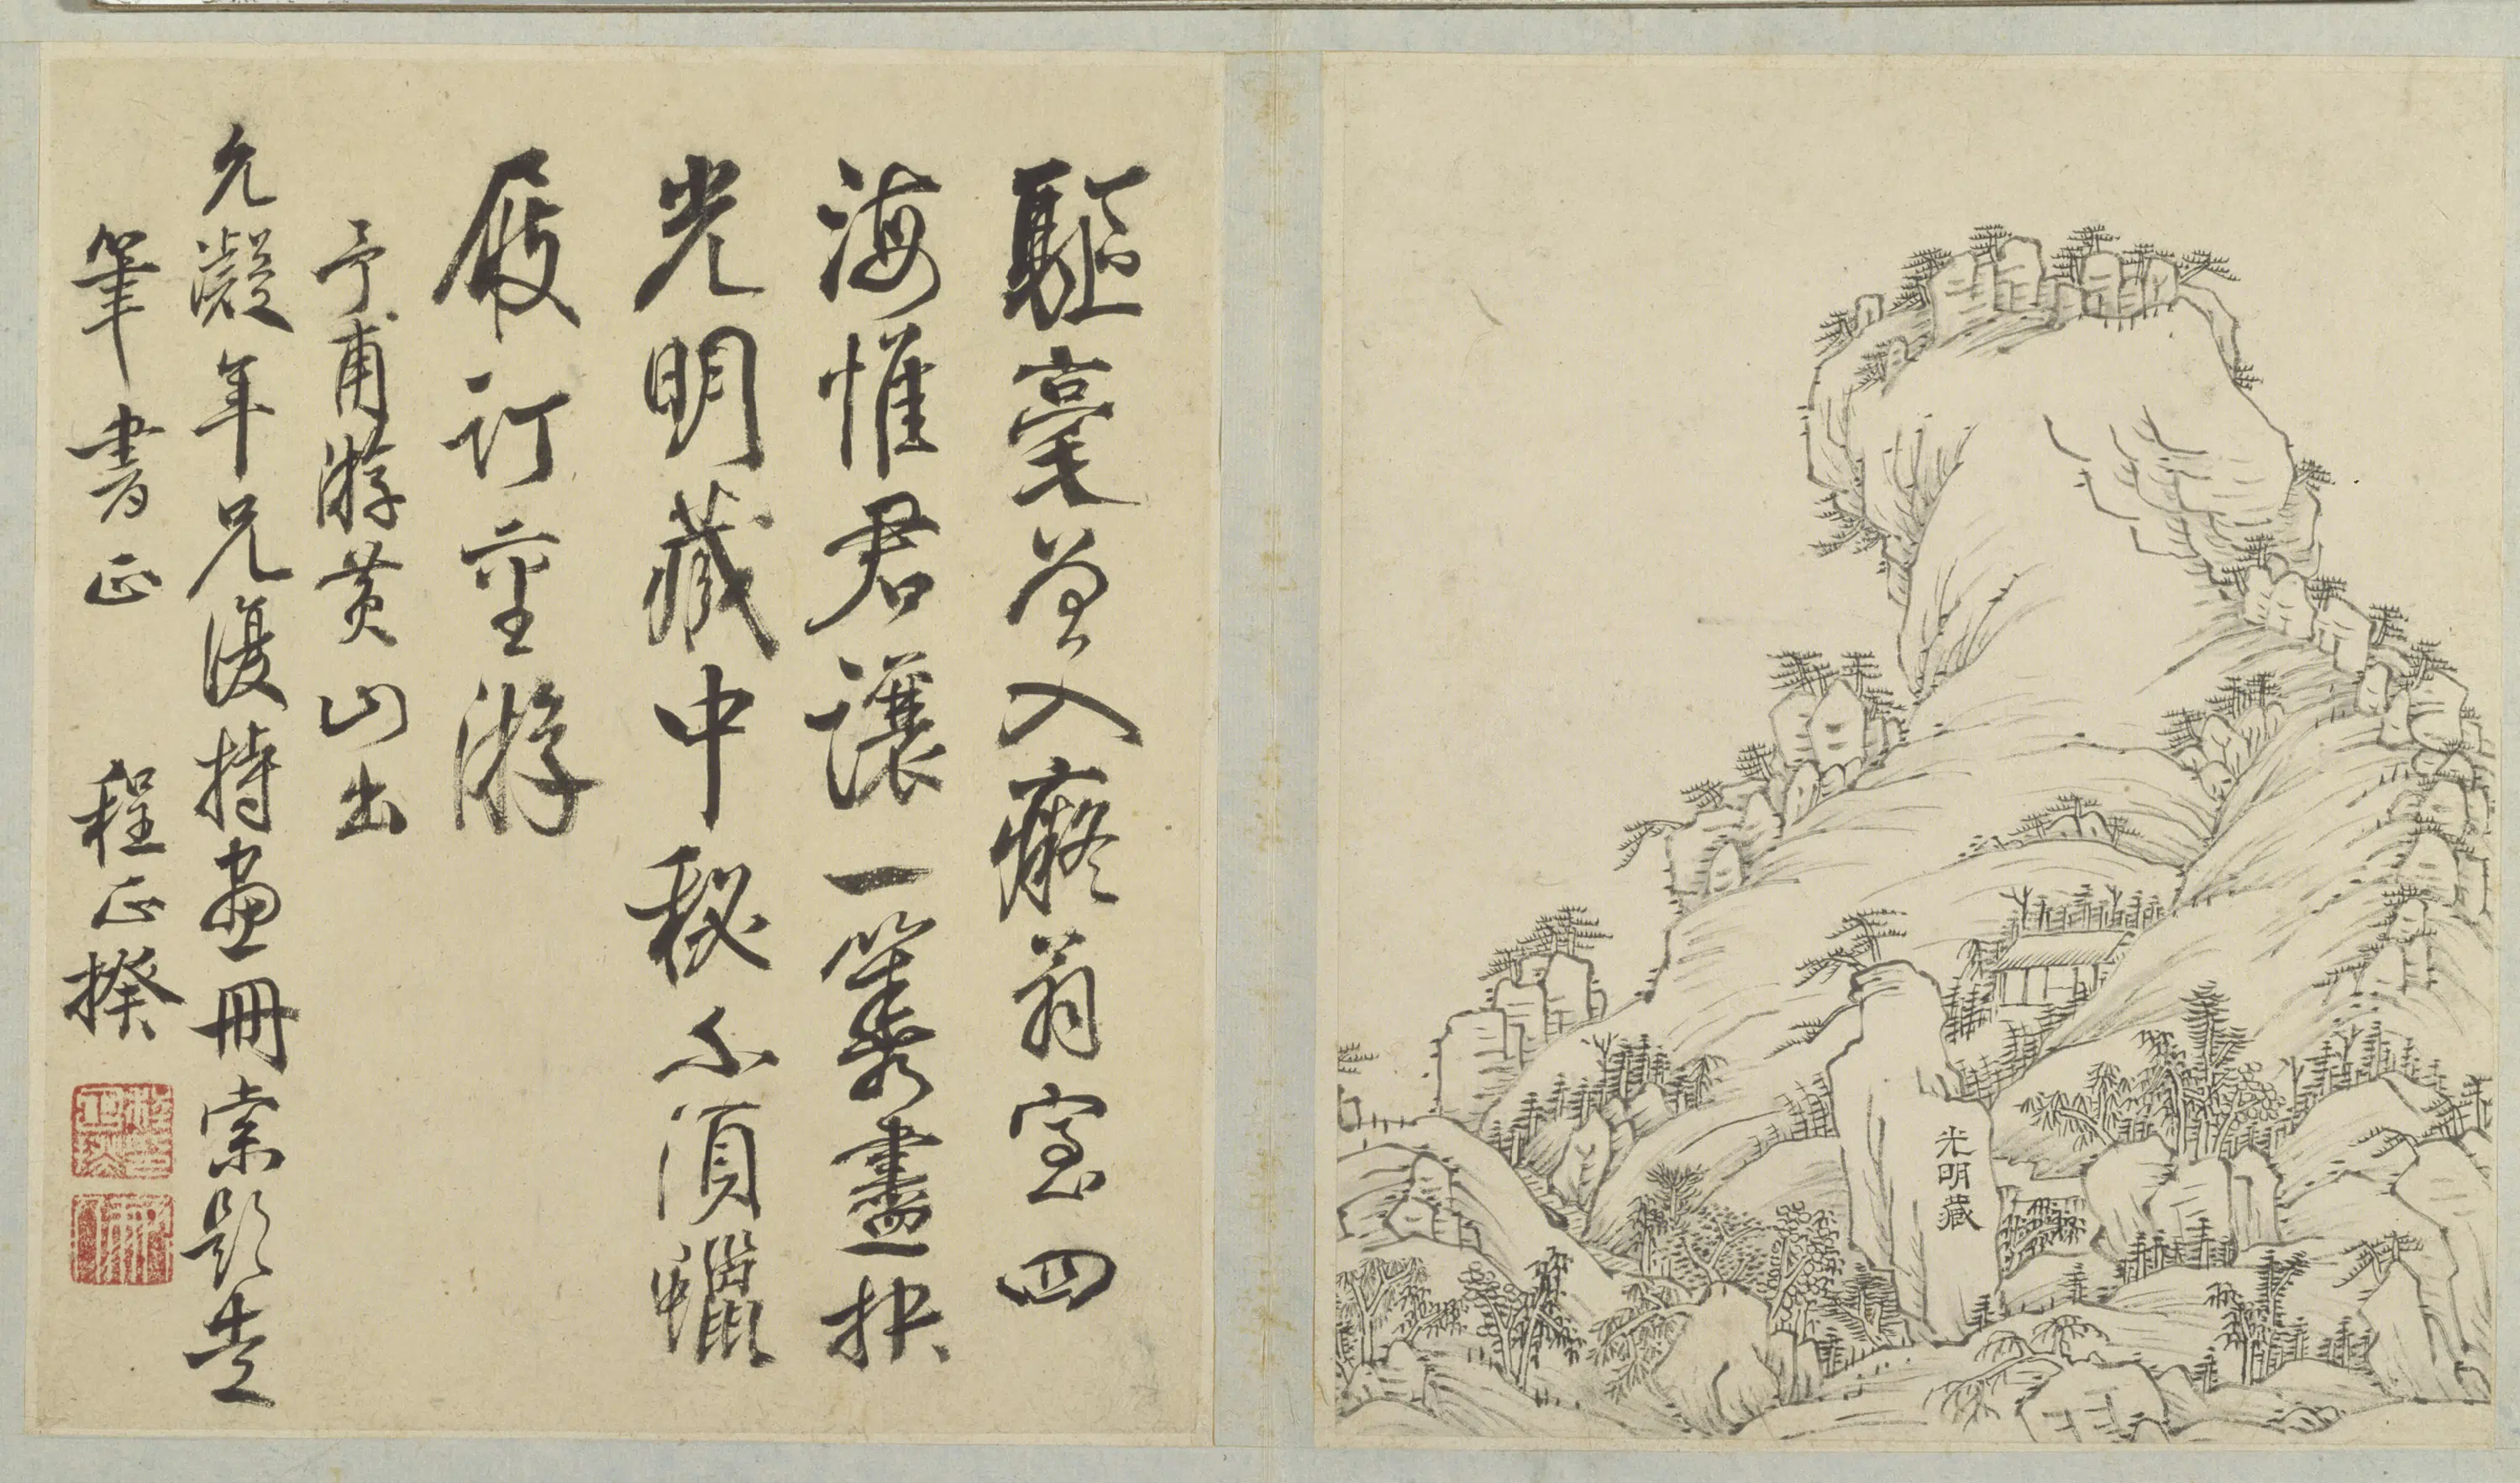 光明藏
驅毫曾入癡翁室四
海惟君讓一籌盡抉
光明藏中秘不須蠟
屐訂重游
予甫游黃山出
允凝年兄復持畫冊索題走
筆書正 程正揆